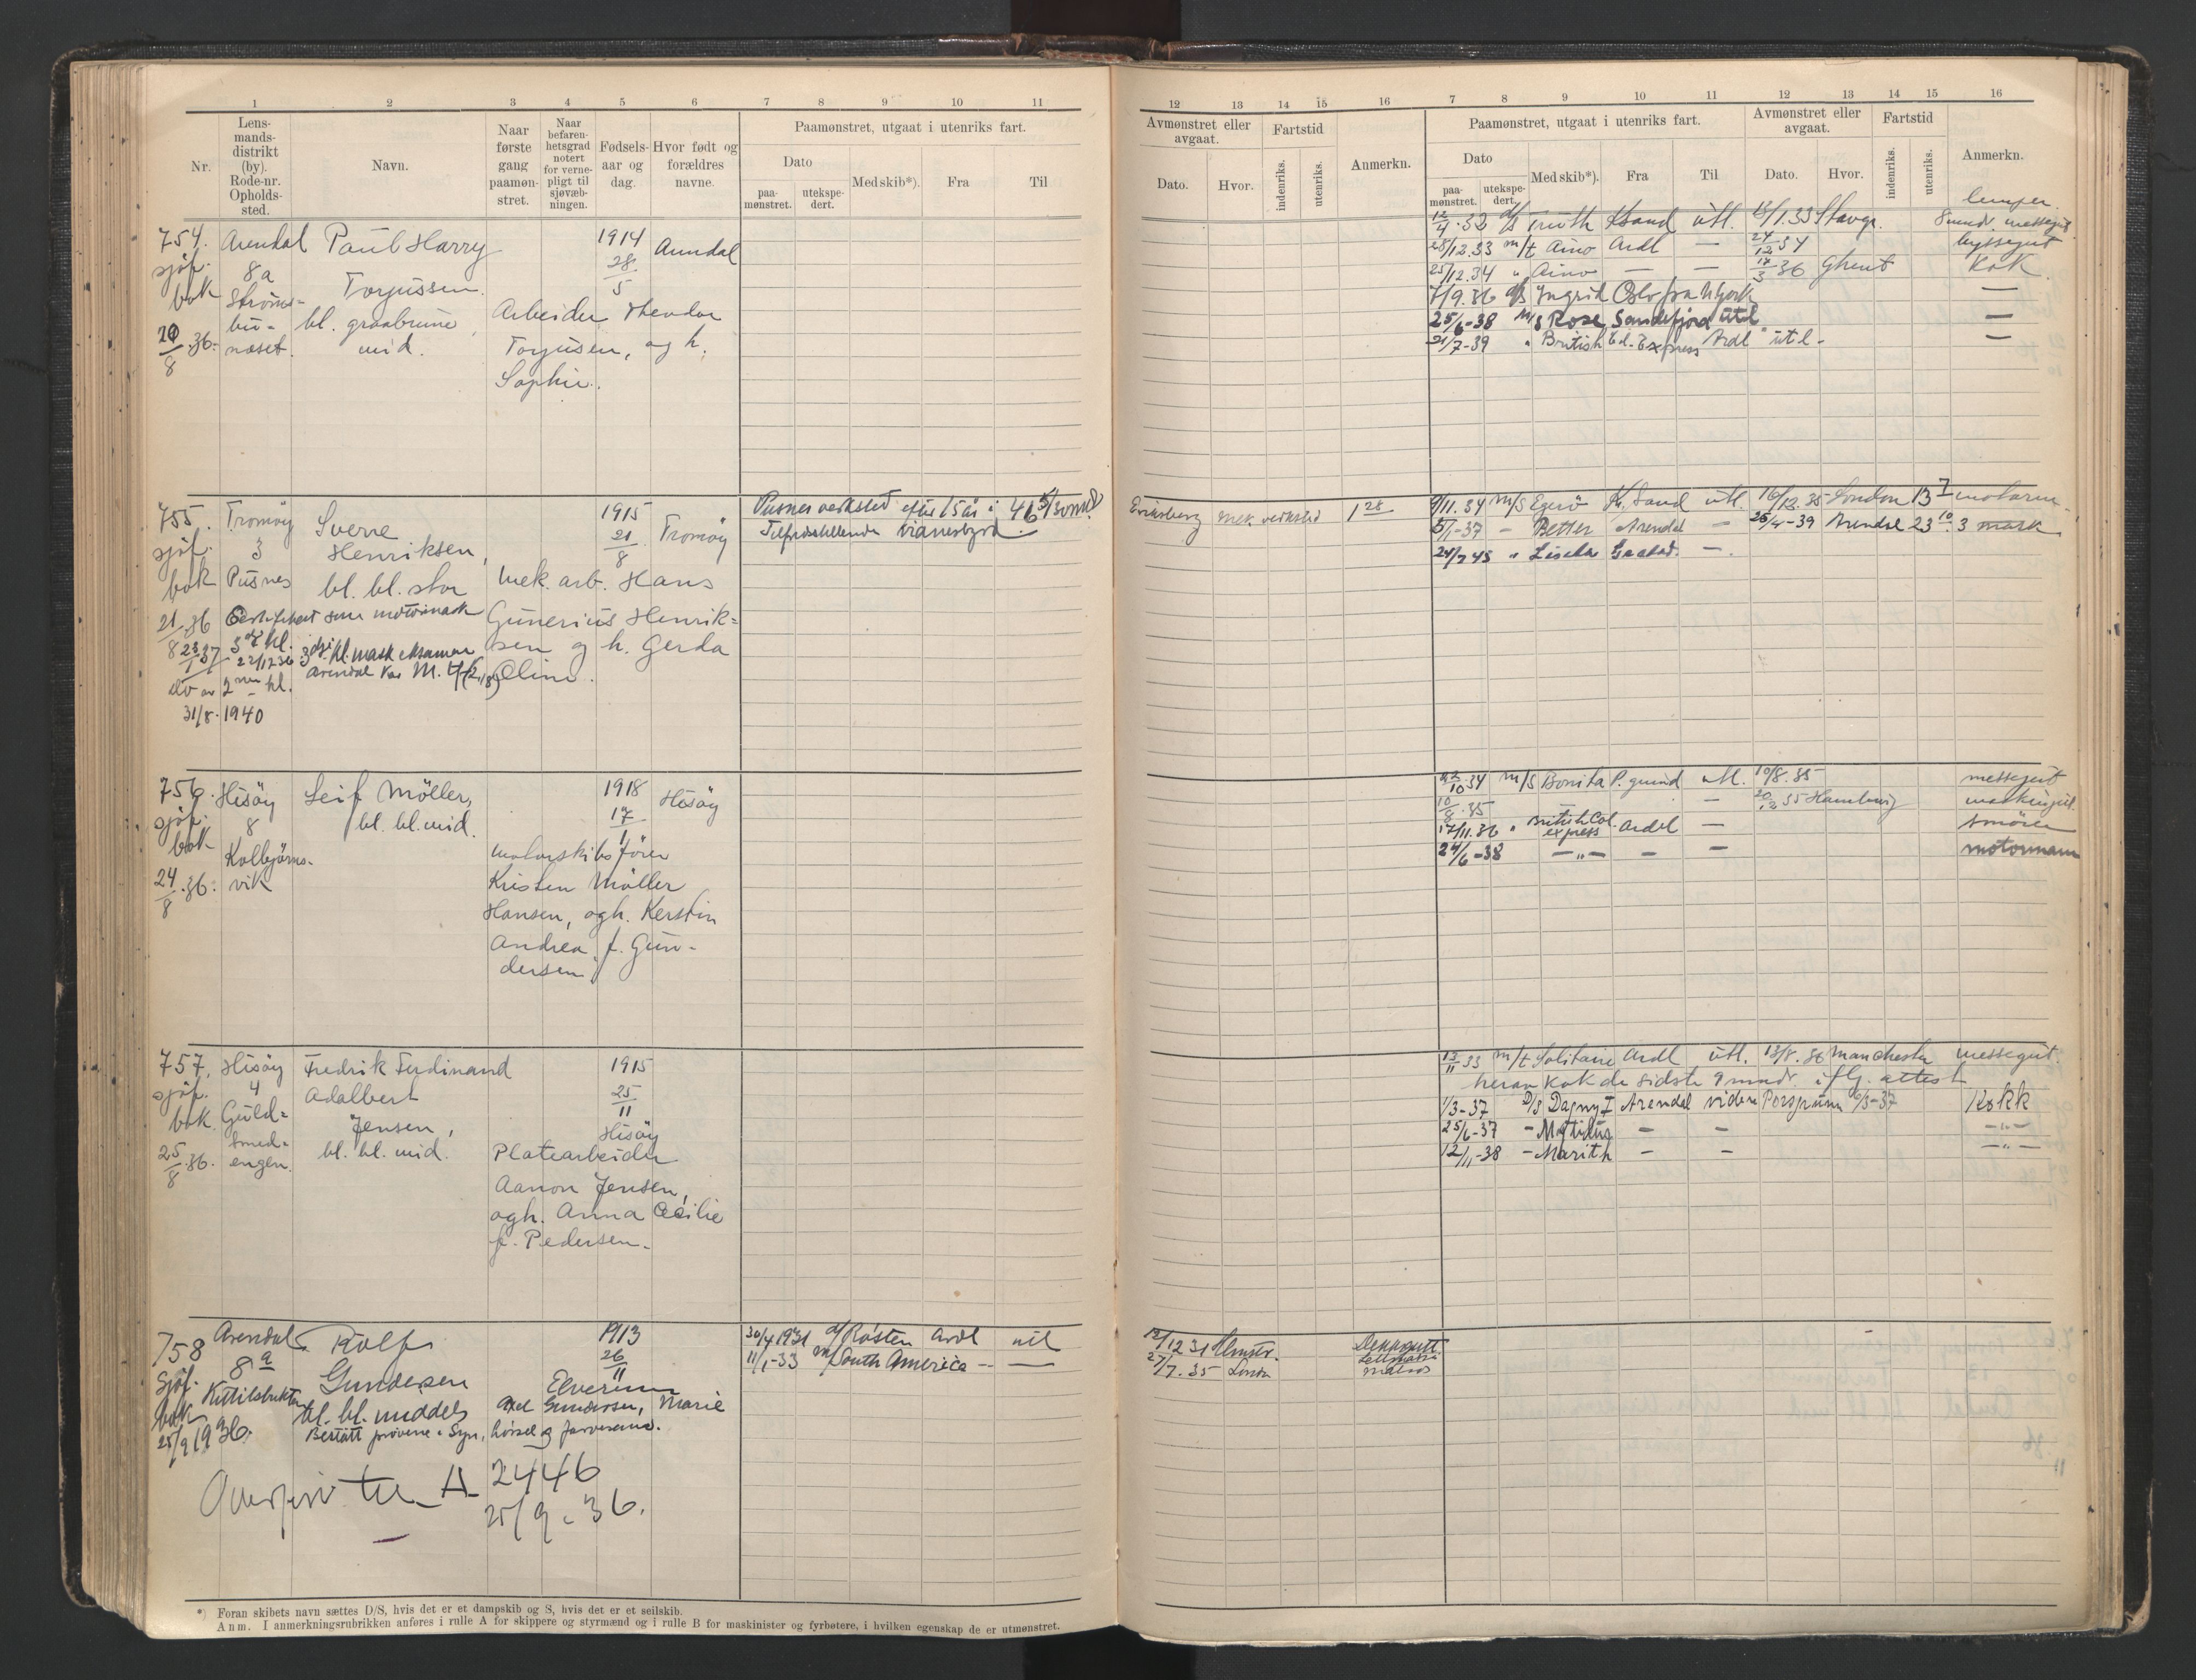 1 2 3 4 5 6 7 8 9 10 11
Nr.
Lens-
mands-
distrikt
(by).
Rode-nr.
Opholds-
sted.
Navn.
Naar
første
gang
paamøn-
stret.
Naar
befaren-
hetsgrad
notert
for verne-
pligt til
sjøvæb-
ningen.
Fødsels-
aar og
dag.
Hvor født og
forældres
navne.
Paamønstret, utgaat i utenriks fart.
Dato
paa-
mønstret.
utekspe-
dert.
Med skib*).
Fra
Til
754. Arendal Paul Harry 1914 Arendal
sjöf. 8a 28
bok Ströms- Torjussen. 5
bu- bl. graabrune, Arbeider Theodor
20/8.36. næset. mid. Torjusen, og h.
Sophie.
755. Tromöy Sverre 1915 Tromöy
sjöf. 3 Henriksen, 21/8
bok Pusnes bl. bl. stor Mek. arb. Hans
21/8 36 Certifikat som motormask Gunerius Henrik-
3dje kl. 22/12 36 3dje kl. mask eksamen sen og h. Gerda
23/1 37 Arendal Oline.
do av 2nen kl.
31/8-1940
Pusnes verksted efter 15 år i
Tilfredsstillende
756. Hisöy Leif Möller, 1918 Hisöy
sjöf. 8 bl. bl. mid. 17/1
bok Kolbjörns- motorskibsförer
24/8.36. vik Kristen Möller
Hansen, og h. Kerstin
Andrea, f. Gun-
dersen
757. Hisöy Fredrik Ferdinand 1915
sjöf. 4 Adalbert 25/11
bok Guld- Jensen, Hisöy
25/8.36. smed- bl. bl. mid. Platearbeider
engen. Aanon Jensen,
og h. Anna Cecilie
f. Pedersen.
758 Arendal Rolf 1913
8a Gundersen 26/11
Sjöf. Kittilsbukten bl. bl. middels Elverum
bok Axel Gundersen, Marie
25/9 1936. Bestått prövene i Syn, hörsel og farvesans.
Overfört til A 2446
25/9-36.
30/4 1931 d/s Rösten Ardl utl
11/1-33 m/s South America — —
*) Foran skibets navn sættes D/S, hvis det er et dampskib og S, hvis det er et seilskib.
Anm. I anmerkningsrubrikken anføres i rulle A for skippere og styrmænd og i rulle B for maskinister og fyrbøtere, i hvilken egenskap de er utmønstret.
12 13 14 15 16 7 8 9 10 11 12 13 14 15 16
Avmønstret eller
avgaat.
Dato.
Hvor.
Fartstid
indenriks.
utenriks.
Anmerkn.
Paamønstret, utgaat i utenriks fart.
Dato
paa-
mønstret.
utekspe-
dert.
Med skib*).
Fra
Til
Avmønstret eller
avgaat.
Dato.
Hvor.
Fartstid
indenriks.
utenriks.
Anmerkn.
lemper.
12/4.32 d/s Truth KSand utl. 13/1.33 Stavgr. 8 mndr. messegut
28/12.33 m/t Aino Ardl — 24/12 34 byssegut
25/12.34 " Aino — — 17/3 36 Ghent Kok
7/9.36 d/s Ingrid Oslo fra N York —
25/6-38 M/S Rose Sandefjord utl —
21/7-39 " British Col. Express Ardl utl- —
Eriksberg mek verksted 1 28
9/11.34 m/s Egerö Kr. Sand utl. 16/12.35 London 13 7 motorm.
5/1-37 — Petter Arendal — 25/4-39 Arendal 23 10. 3 mask.
24/7 45 " —.
22/10.34 m/s Bonita P. grund utl. 10/8.35 messegut
10/8.35 — 20/12 35 Hamburg maskingut.
17/11.36 " British Col. express Ardl — smörer
24/6-38 —"— — — motormann
13/11 33 m/t Solitaire Ardl utl. 13/8.36 Manchester messegut.
herav kok de sidste 9 mndr. iflg. attest
1/3-37 D/S Dagny I Arendal videre Porsgrunn 6/3-37 Kokk
25/6-37 — — — —"—
12/11-38 — Marith — — —"—
12/12 31 Dekksgutt
27/7.35 Lettmatr
matros